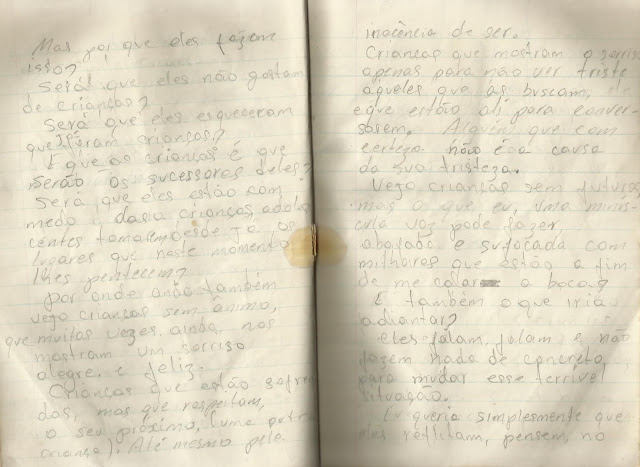 Mas por que eles fazem
isso?
Será que eles não gostam
de crianças?
Será que eles esqueceram
que já foram crianças?
E que as crianças é que
serão os sucessores deles?
Será que eles estão com
medo das crianças, adoles
centes tomarem desde já os
lugares que neste momento
lhes pertecem?
Por onde ando também
vejo crianças sem ânimo,
que muitas vezes ainda, nos
mostram um sorriso
alegre e feliz.
Crianças que estão sofri
das, mas que respeitam,
o seu próximo, (uma outra
criança). Até mesmo pela
inocência de ser.
Crianças que mostram o sorriso
apenas para não ver triste
aqueles que as buscam,
e que estão ali para conver-
sarem. Alguém que com
certeza não é a causa
da sua tristeza.
Vejo crianças sem futuro,
mas o que eu, uma minús-
cula voz pode fazer,
abafada e sufocada com
milhares que estão a fim
de me calar a boca?
E também o que iria
adiantar?
Eles falam, falam e não
fazem nada de concreto,
para mudar esse terrível
situação.
Eu queria simplesmente que
eles reflitam, pensem, no